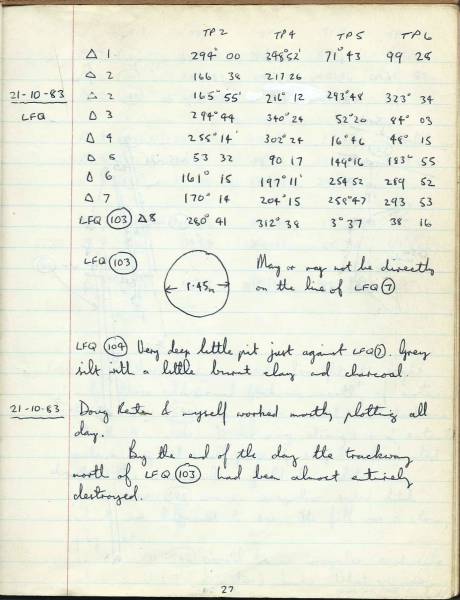 TP2 TP4 TP5 TP6
Δ 1 294° 00 248°52' 71°43 99 28
Δ 2 166 38 217 26
21-10-83 Δ 2 165° 55' 216° 12 293°48 323° 34
LFQ Δ 3 294° 44 340° 24 52°20 84° 03
Δ 4 255° 14' 302° 24 16°46 48° 15
Δ 5 53 32 90 17 149°16 183° 55
Δ 6 161° 15 197° 11' 254 52 289 52
Δ 7 170° 14 204° 15 258°47 293 53
LFQ 103 Δ8 280° 41 312° 38 3° 37 38 16
LFQ 103 May or may not be directly
1.45m on the line of LFQ 7
LFQ 104 Very deep little pit just against LFQ 7. Grey
silt with a little burnt clay and charcoal.
21-10-83 Doug & myself worked mostly plotting all
day.
By the end of the day the trackway
north of LFQ 103 had been almost entirely
destroyed.
27